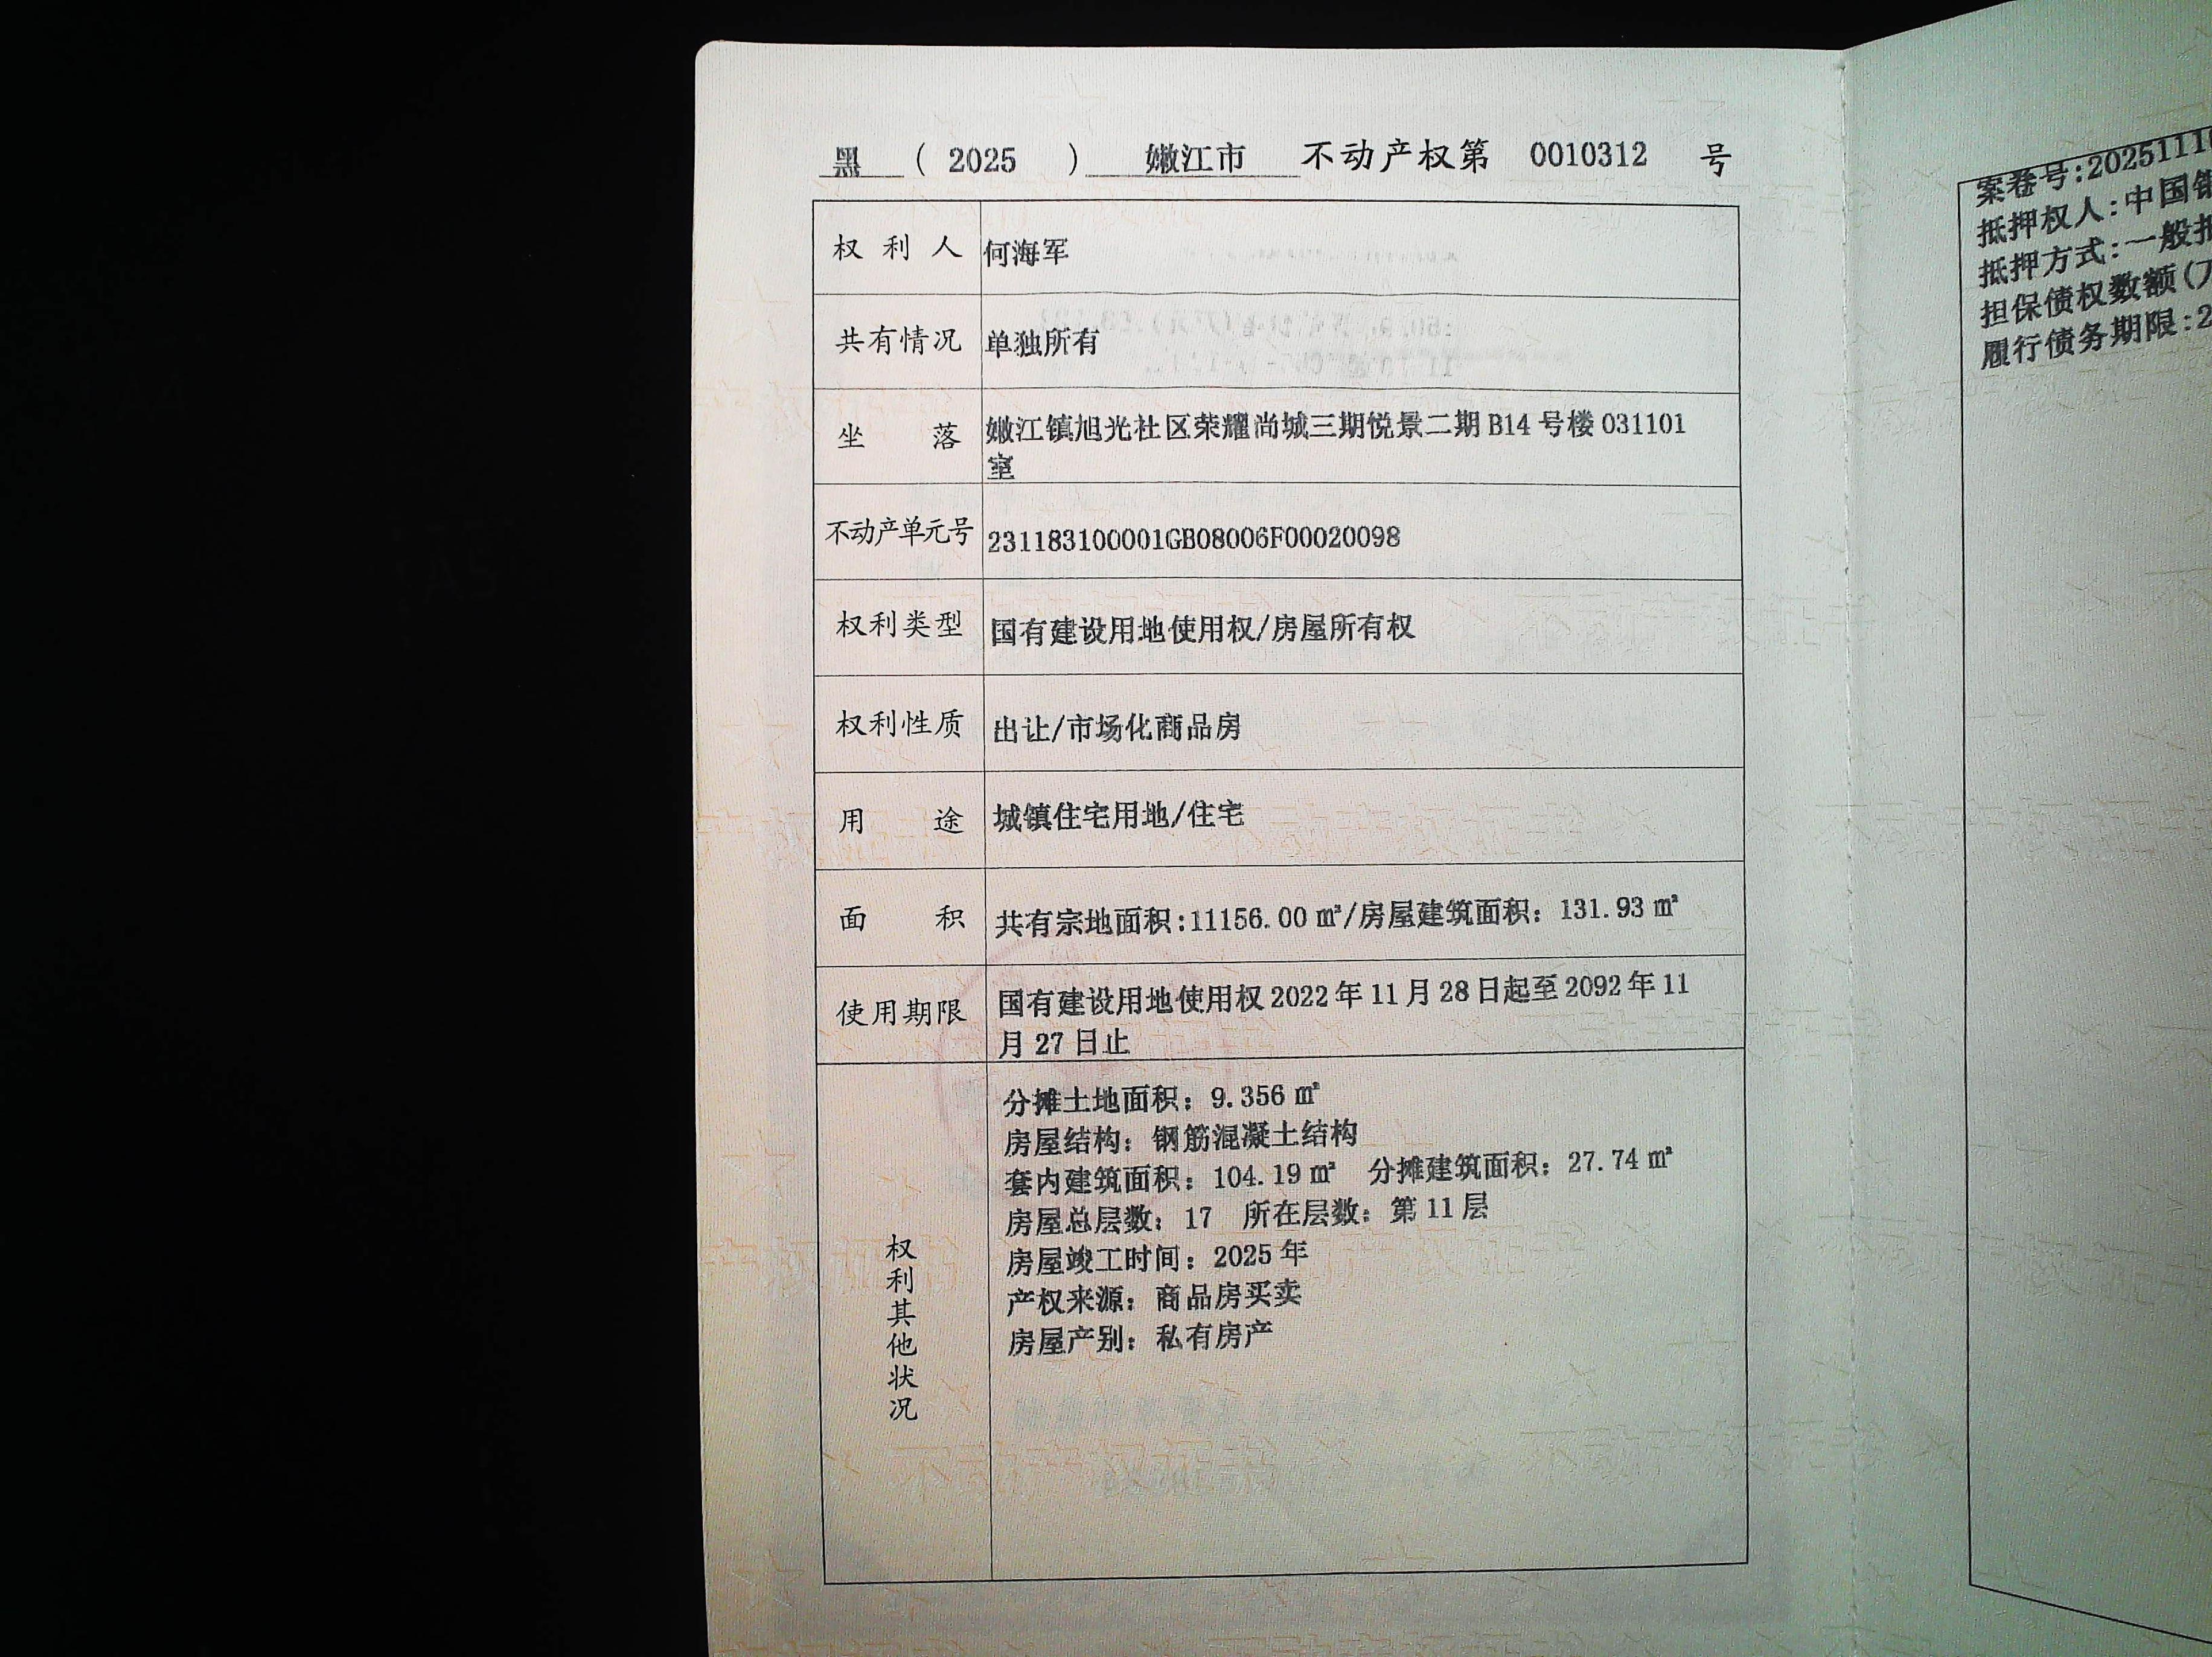 黑 ( 2025 ) 嫩江市 不动产权第 0010312 号
权利人 何海军
共有情况 单独所有
坐落 嫩江镇旭光社区荣耀尚城三期悦景二期 B14 号楼 031101
室
不动产单元号 231183100001GB08006F00020098
权利类型 国有建设用地使用权/房屋所有权
权利性质 出让/市场化商品房
用途 城镇住宅用地/住宅
面积 共有宗地面积:11156.00 ㎡/房屋建筑面积：131.93 ㎡
使用期限 国有建设用地使用权 2022 年 11 月 28 日起至 2092 年 11
月 27 日止
权利其他状况
分摊土地面积：9.356 ㎡
房屋结构：钢筋混凝土结构
套内建筑面积：104.19 ㎡ 分摊建筑面积：27.74 ㎡
房屋总层数：17 所在层数：第 11 层
房屋竣工时间：2025 年
产权来源：商品房买卖
房屋产别：私有房产
案卷号:2025111
抵押权人:中国
抵押方式:一般
担保债权数额(
履行债务期限:2